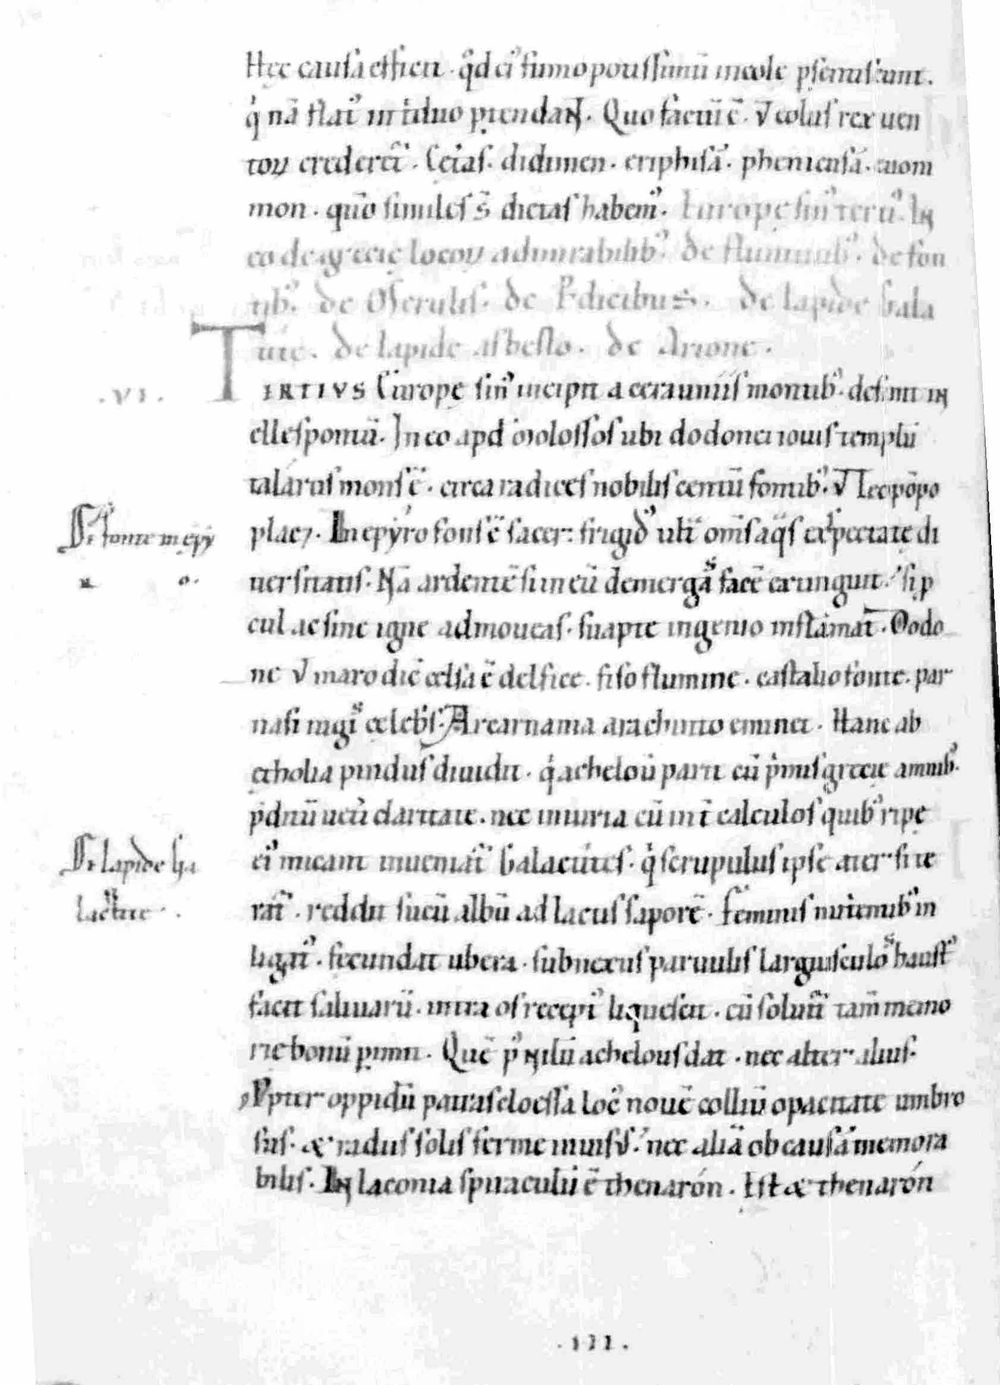 Hęc causa efficit. qd ei' fumo potissimū incole p̄senṫiscunt.
q̇ nā flat' in triduo p̄tendaɴt. Quo factū ē. ut eolus rex uen
toꝝ crederet̄. Ceɫas. didimen. eriphusā. pheniciusā. euoni
mon. quō similes s̄ dictas habem'. Europe sin' terti'. In
eo de gręcię locoꝝ admirabilib'. de fluminib'. de fon
tib'. de Merulis. de P̄dicibus. de lapide Gala
tite. de lapide asbesto. de Arione.
.VI. TERTIVS Europe sin' incipit a cerauniis montib'. desinit in
ellespontū. In eo apd molossos ubi dodonei iouis templū
talarus mons ē. circa radices nobilis centū fontib'. ut teopōpo
placꝫ. In epyro fons ē sacer: frigid' ultᷓ om̄s aq̄s et spectate di
De fonte in epy
ro.
uersitatis. Nā ardentē si in eū demergas facē extinguit. si p̱
cul ac sine igne admoueas. suapte ingenio inflāmat. Dodo
ne ut maro dic̄ celsa ē delfice. fiso flumine. castalio fonte. par
nasi iugis celebs. Arcarnania arachinto eminet. Hanc ab
etholia pindus diuidit. q̇ acheloū parit cū p̄mis gręcię amnib'.
p̄dictū uetīi claritate. nec iniuria cū int̄ calculos quib' ripe
ei' micant inueniat̄ Galactites. q̇ scrupulus ipse ater si te
De lapide Ga
lactite.
rat̄. reddit sucū albū ad lactis saporē. feminis nutientib' in
ligat'. fecundat ubera. subnexus paruulis largiusculos haust'
facit saliuarū. intra os recept' liquescit. cū soluit̄ tam̄ memo
rię bonū p̱imit. Quē p' nilū achelous dat. nec alter alius.
Ppter oppidū patras cloessa loc' nouē colliū opacitate umbro
sus. & radiis solis ferme inuisus. nec aliā ob causā memora
bilis. In laconia spiraculū ē thenarón. Est & thenarón
.III.